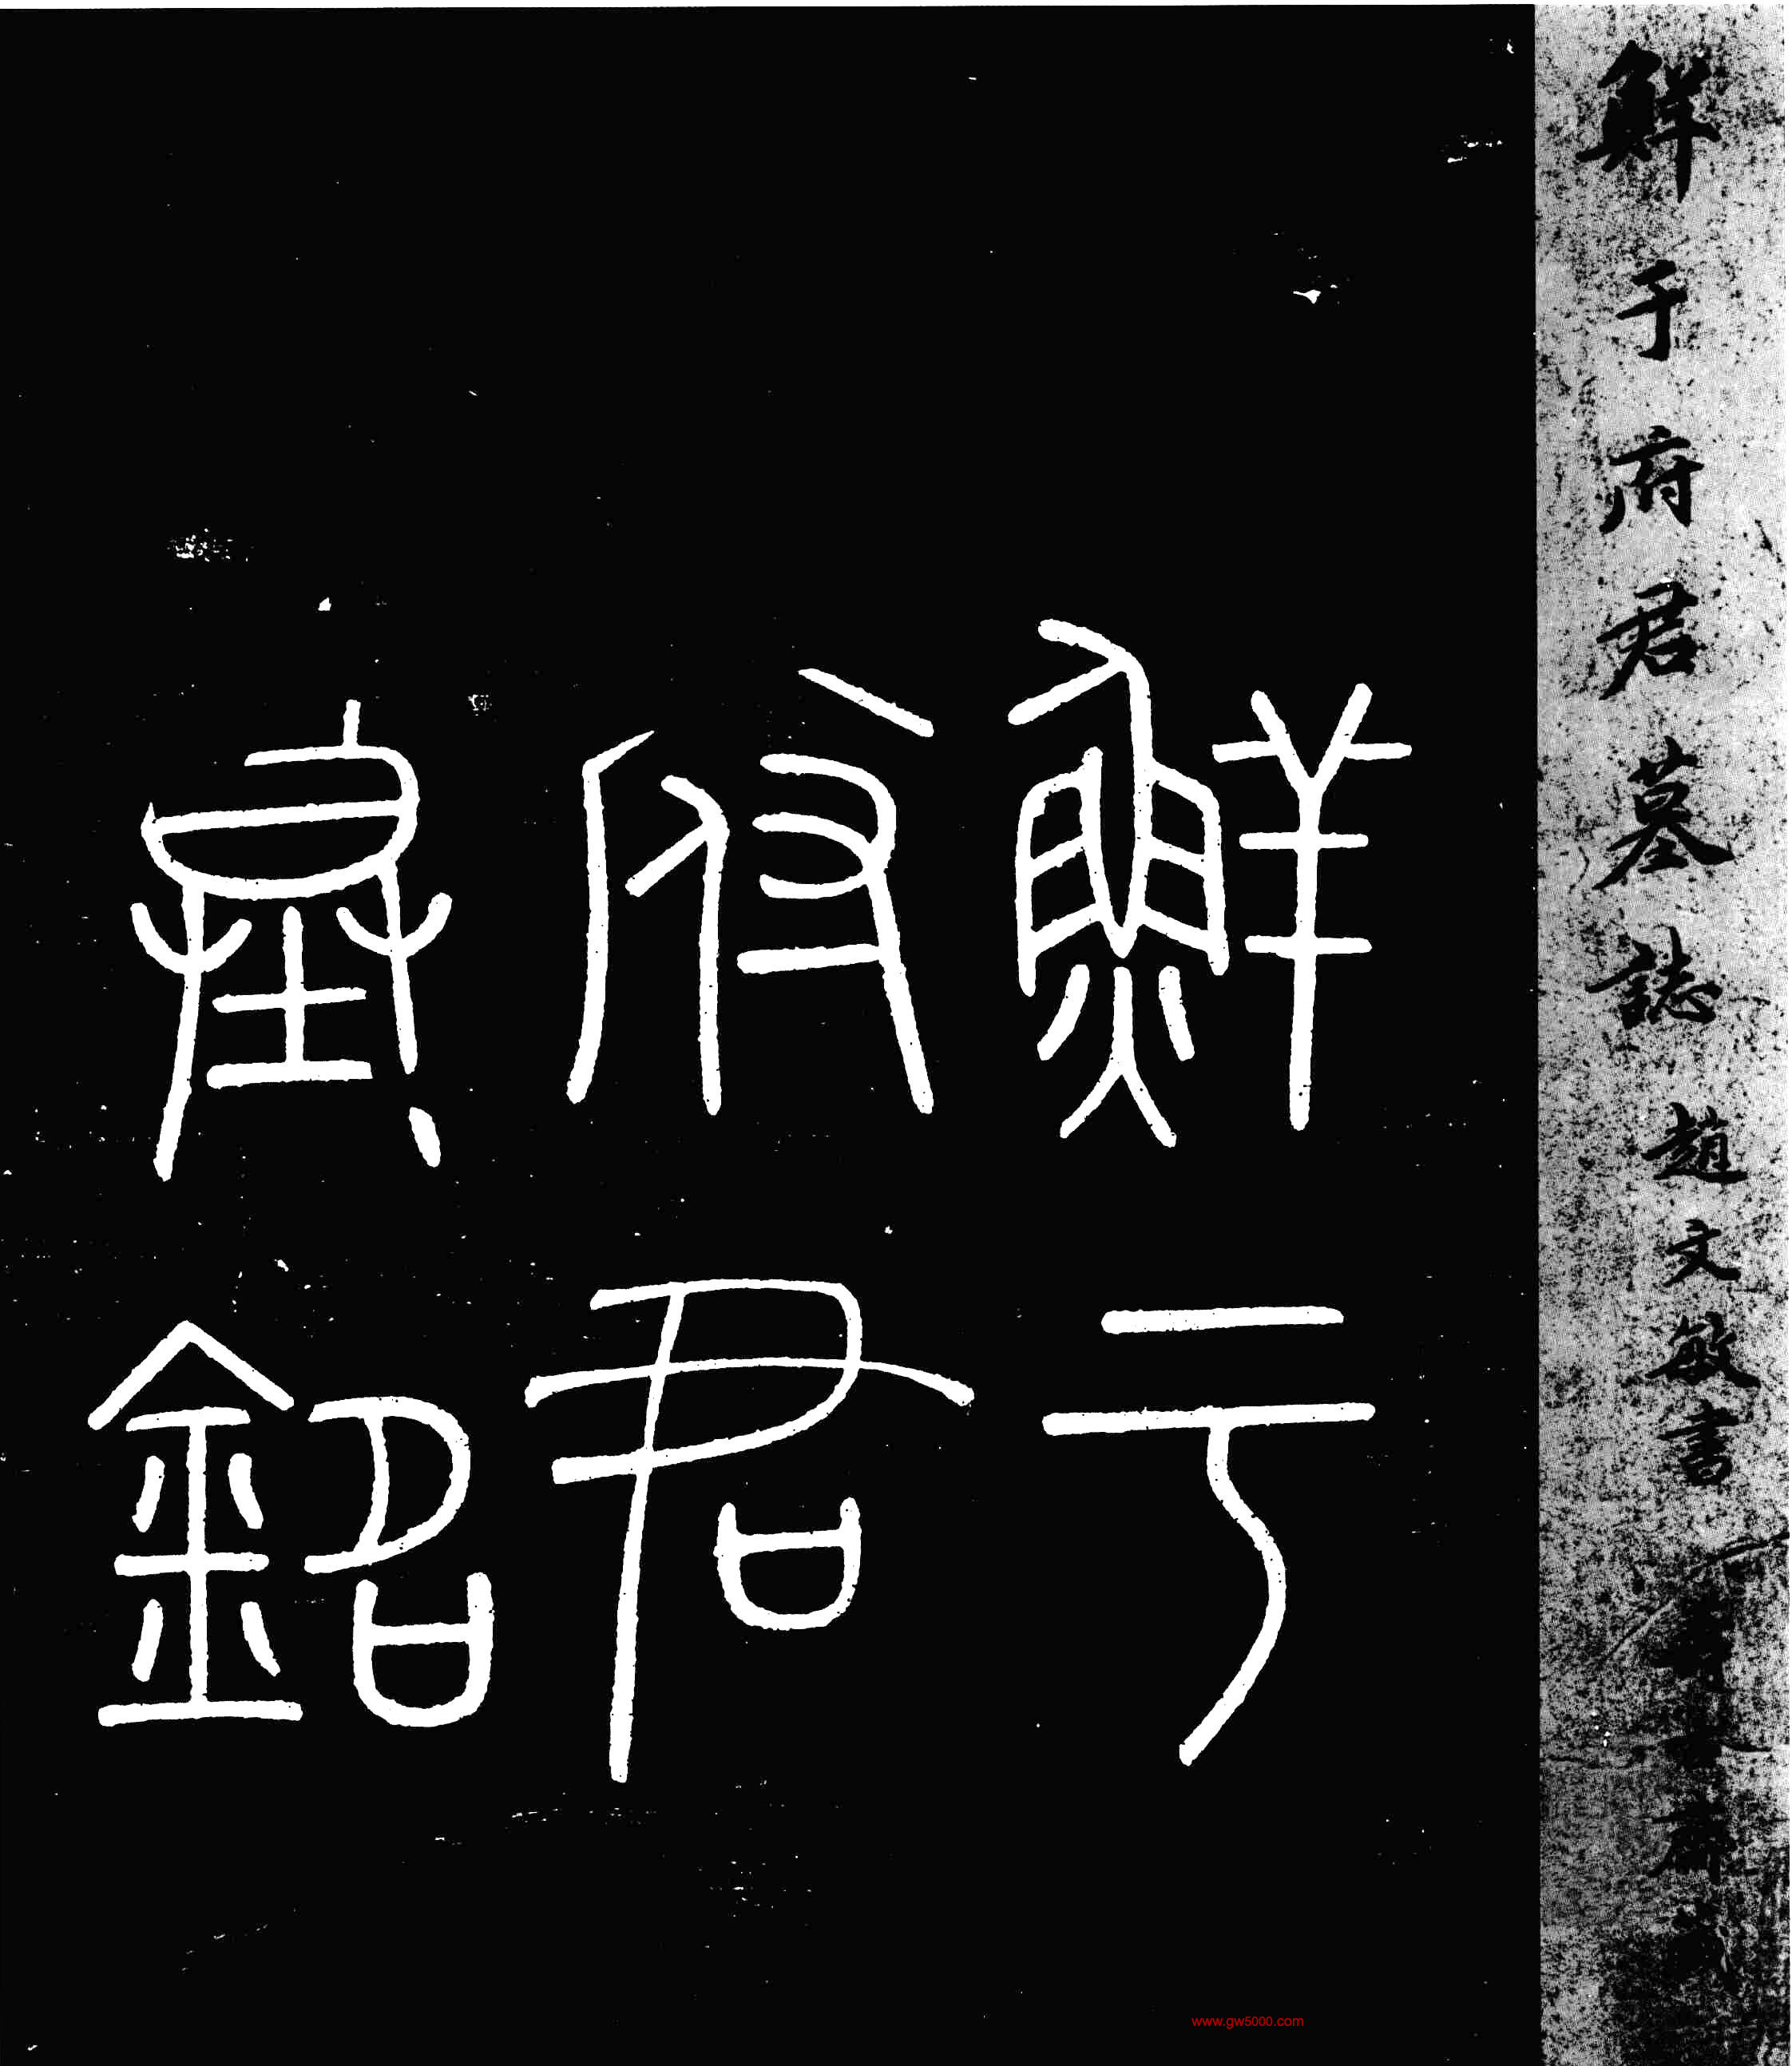 鮮于府君墓誌 趙文敏書
鮮于
府君
銘
www.gw5000.com